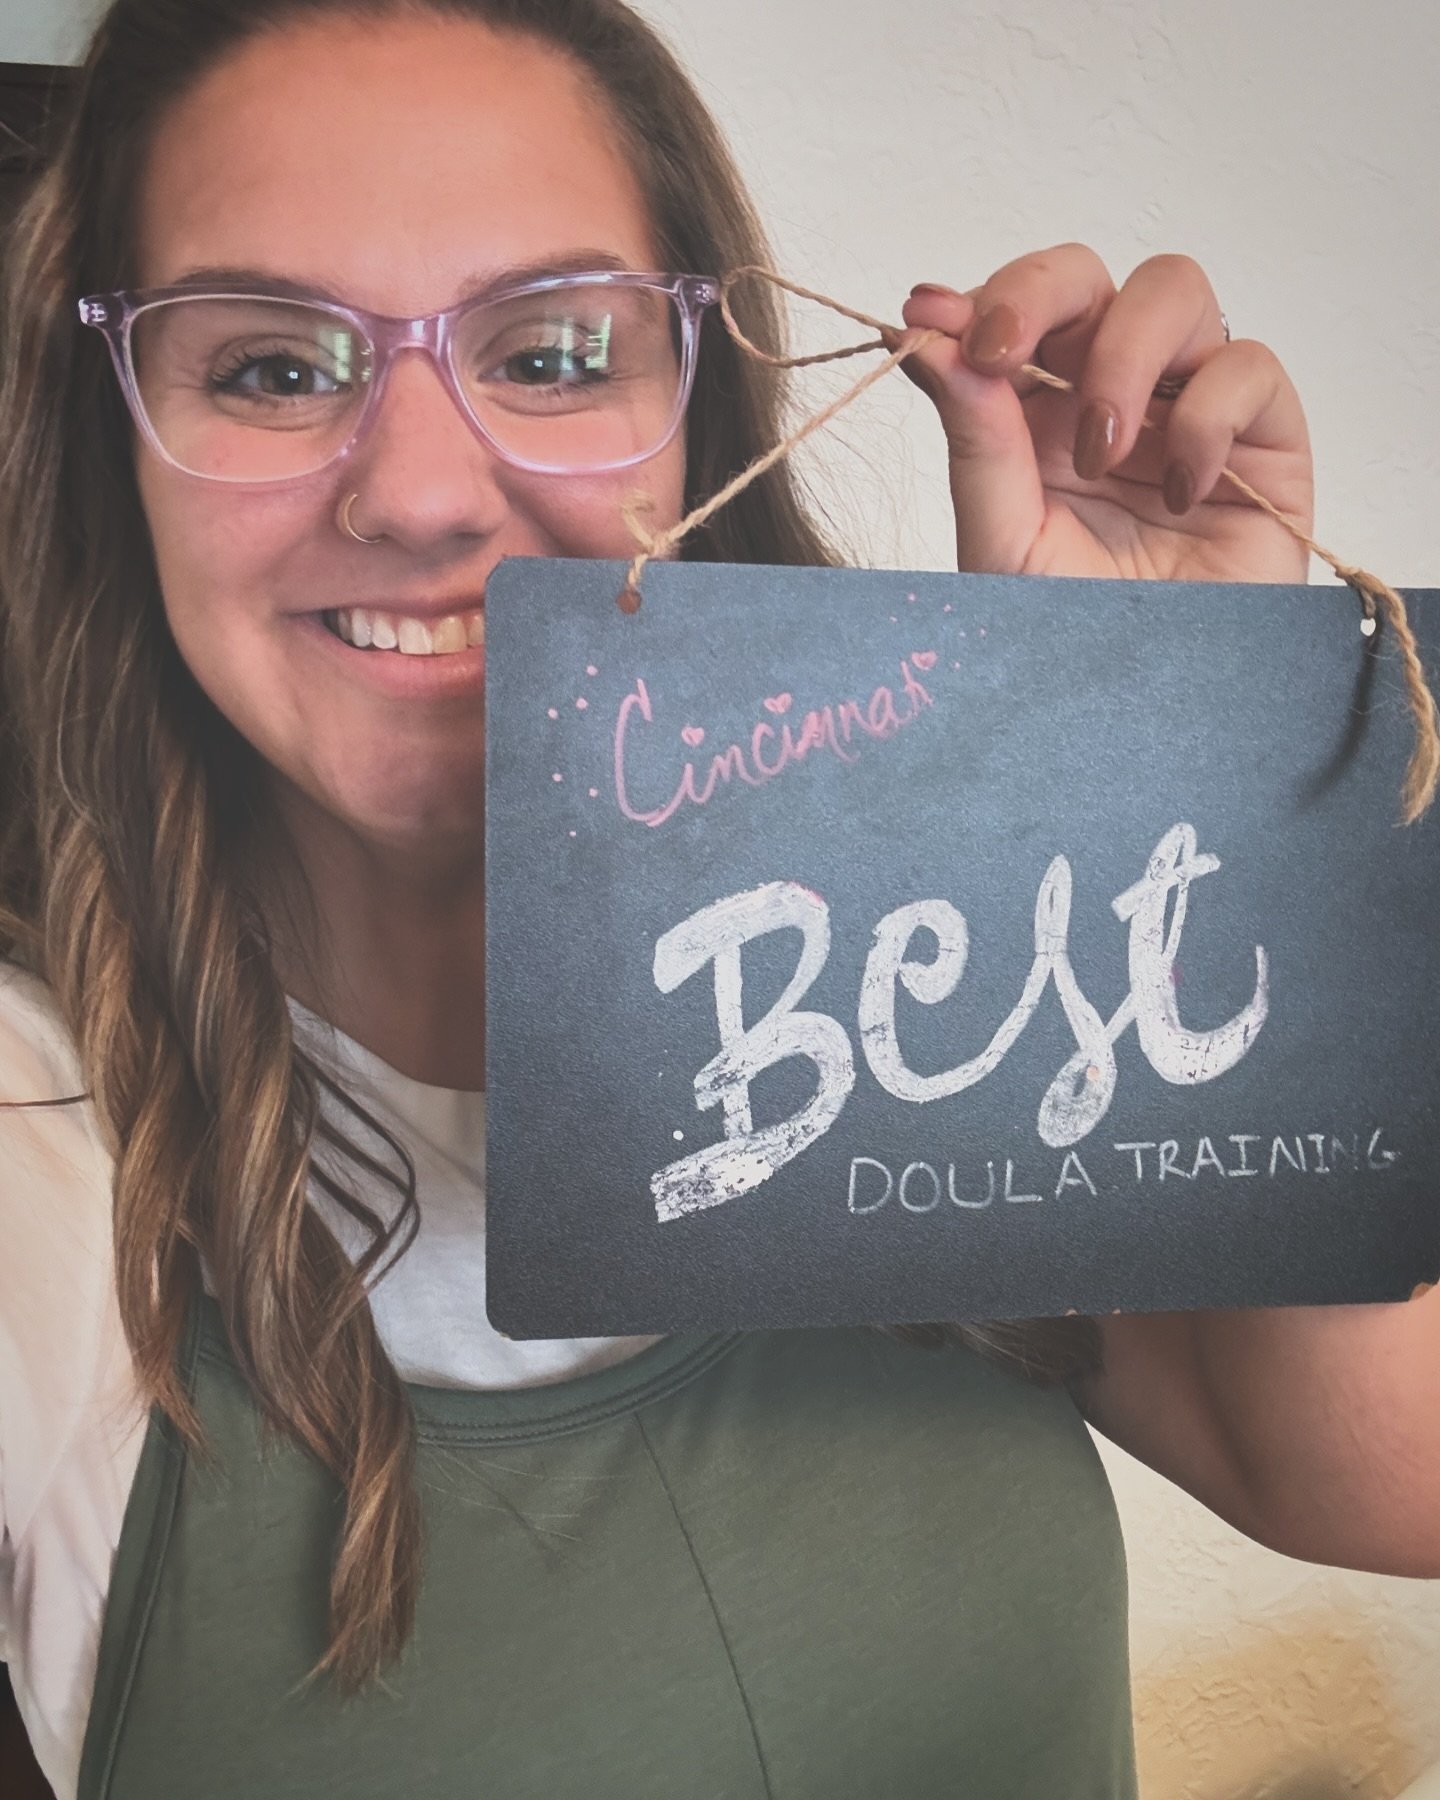 Cincinnati
Best
DOULA TRAINING